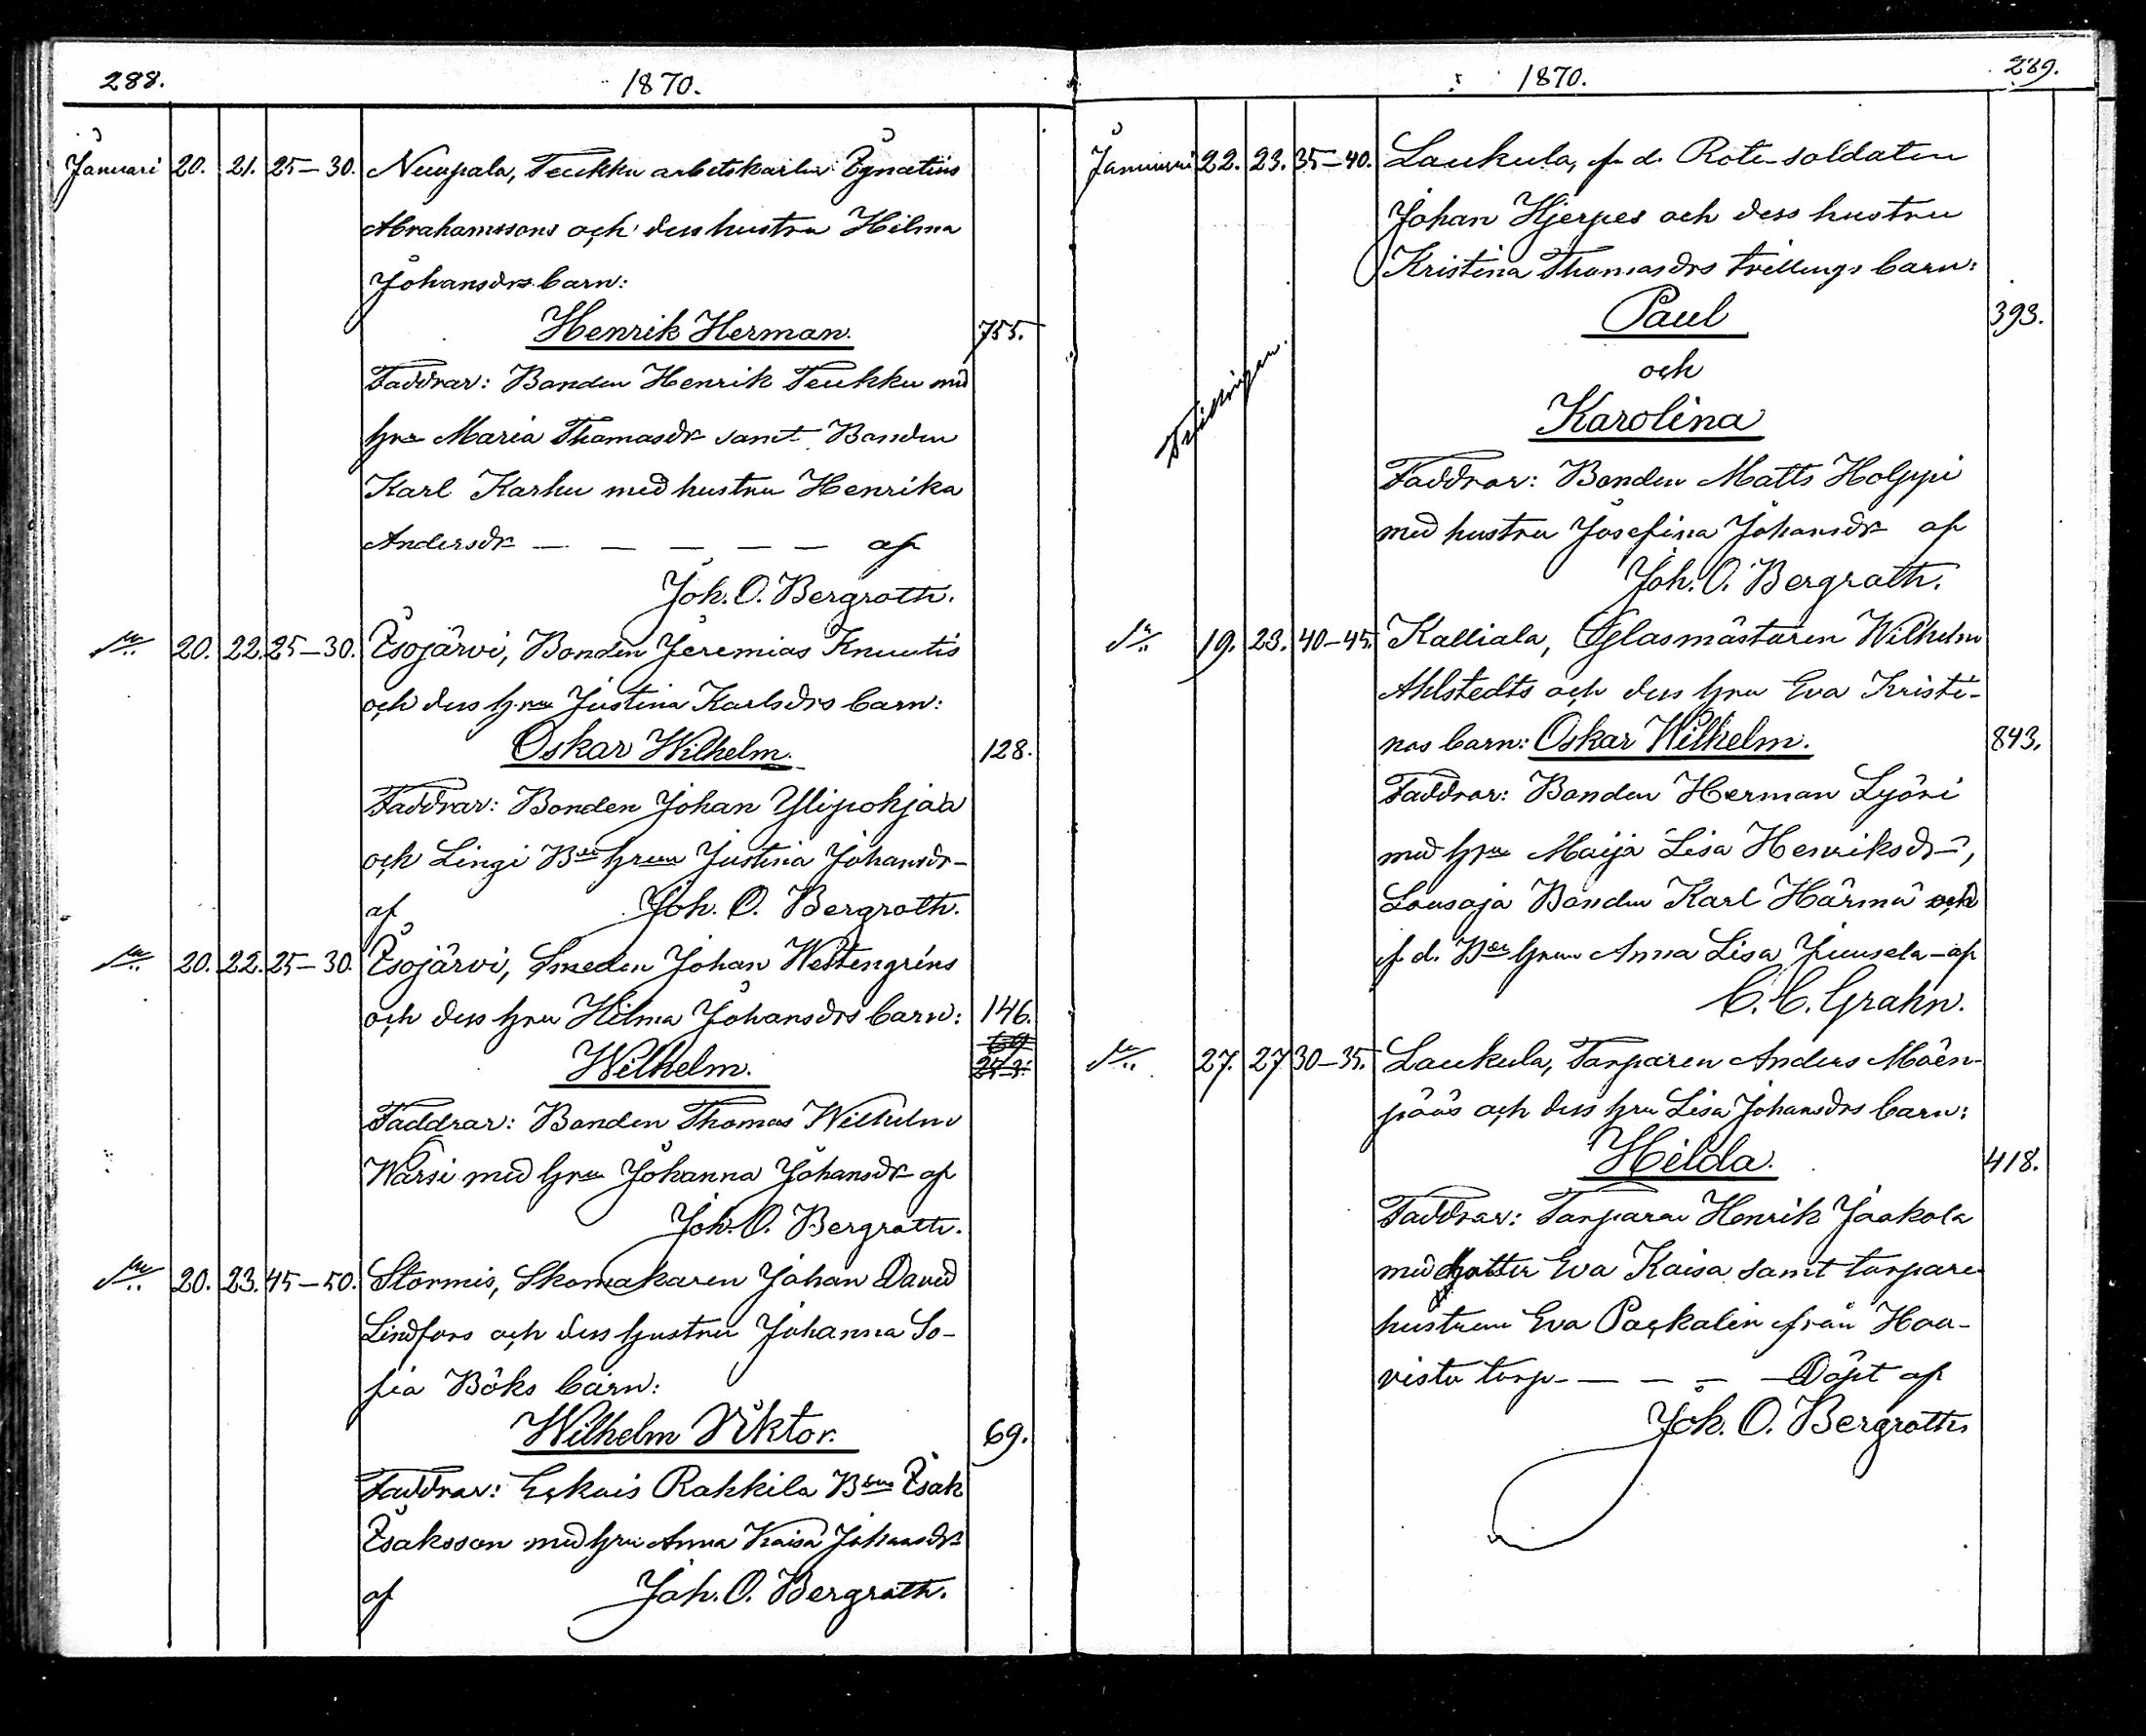 288.
1870.
Januari 20. 21. 25–30. Nuupala, Teukku arbetskarlen Ignatius
Abrahamssons och dess hustru Hilma
Johansdrs barn:
Henrik Herman. 755.
Faddrar: Bonden Henrik Teukku med
hru Maria Thomasdr samt Bonden
Karl Karhu med hustru Henrika
Andersdr — — — — — af
Joh. O. Bergroth.
20. 22. 25–30. Isojärvi, Bonden Jeremias Knuutis
och dess hru Justina Karlsdrs barn:
Oskar Wilhelm. 128.
Faddrar: Bonden Johan Ylipohjaa
och Lingi Bde hrun Justina Johansdr–
af Joh. O. Bergroth.
20. 22. 25–30. Isojärvi, Smeden Johan Westengrens
och dess hru Hilma Johansdrs barn: 146.
69
Wilhelm.
Faddrar: Bonden Thomas Wilhelm
Warsi med hru Johanna Johansdr af
Joh. O. Bergroth.
20. 23. 45–50. Stormis, Skomakaren Johan David
Lindfors och dess hustru Johanna So-
fia Böks barn:
Wilhelm Viktor. 69.
Faddrar: Eckois Rahkila Isak
Isaksson med hru Anna Kaisa Johansdr
af Joh. O. Bergroth.
289.
1870.
Januari 22. 23. 35–40. Laukula, f. d. Rote soldaten
Johan Hjerpes och dess hustru
Kristina Thomasdrs tvillings barn:
Paul 393.
och
Karolina
Faddrar: Bonden Matts Holppi
med hustru Josefina Johansdr af
Joh. O. Bergroth.
19. 23. 40–45. Kalliala, Glasmästaren Wilhelm
Ahlstedts och dess hru Eva Kristi-
nas barn: Oskar Wilhelm. 843.
Faddrar: Bonden Herman Lyöri
med hru Maija Lisa Henriksdr,
Lousaja Bonden Karl Härmä och
f. d. hrun Anna Lisa Juusela – af
C. C. Grahn.
27. 27 30–35. Laukula, Torparen Anders Mäen-
pääs och dess hru Lisa Johansdrs barn:
Hilda. 418.
Faddrar: Torparen Henrik Jaakola
med dotter Eva Kaisa samt torpare
hustrun Eva Packalen från Haa-
visto torp — — — Döpt af
Joh. O. Bergroth